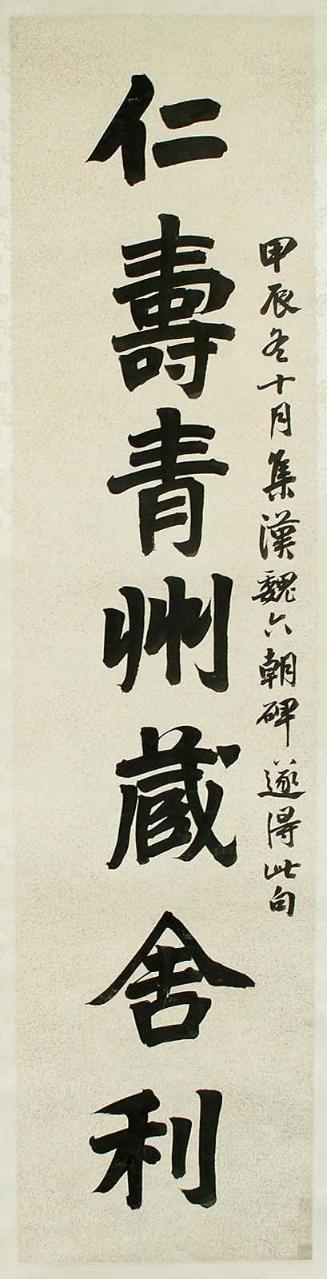 甲辰冬十月集漢魏六朝碑遂得此句
仁壽青州蔵舍利